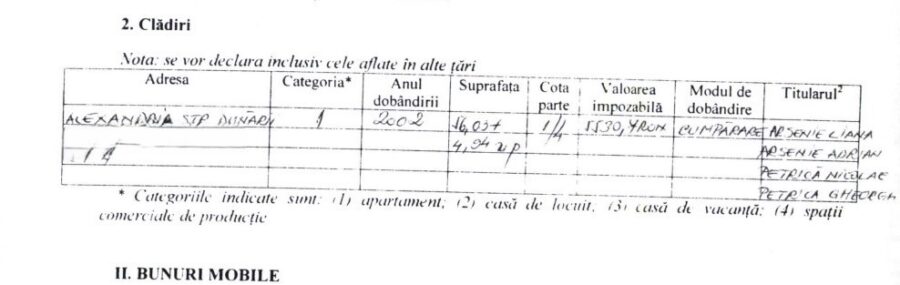 2. Clădiri
Nota: se vor declara inclusiv cele aflate în alte țări
Adresa Categoria* Anul dobândirii Suprafața Cota parte Valoarea impozabilă Modul de dobândire Titularul²
ALEXANDRIA STR DUNĂRII 1 2002 56,05+ 1/4 5530,4RON CUMPĂRARE ARSENIE LIANA
4,94 ARSENIE ADRIAN
PETRICĂ NICOLAE
PETRICA GHEORGH
* Categoriile indicate sunt: (1) apartament; (2) casă de locuit; (3) casă de vacanță; (4) spații
comerciale de producție
II. BUNURI MOBILE